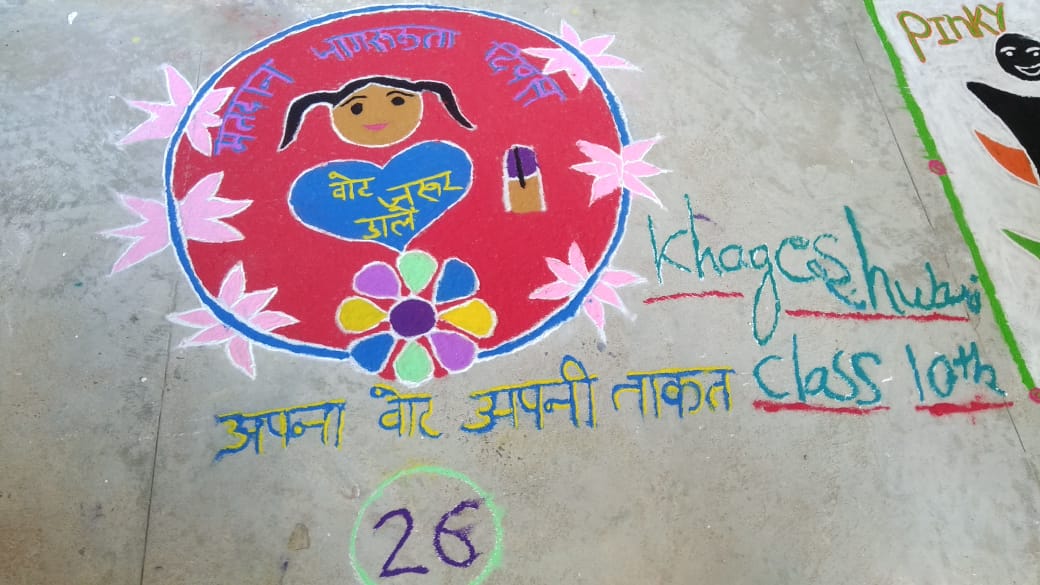 मतदान जागरूकता दिवस
वोट
जरूर
डाले
अपना वोट अपनी ताकत
Khageshwari
Class 10th
26
PINKY